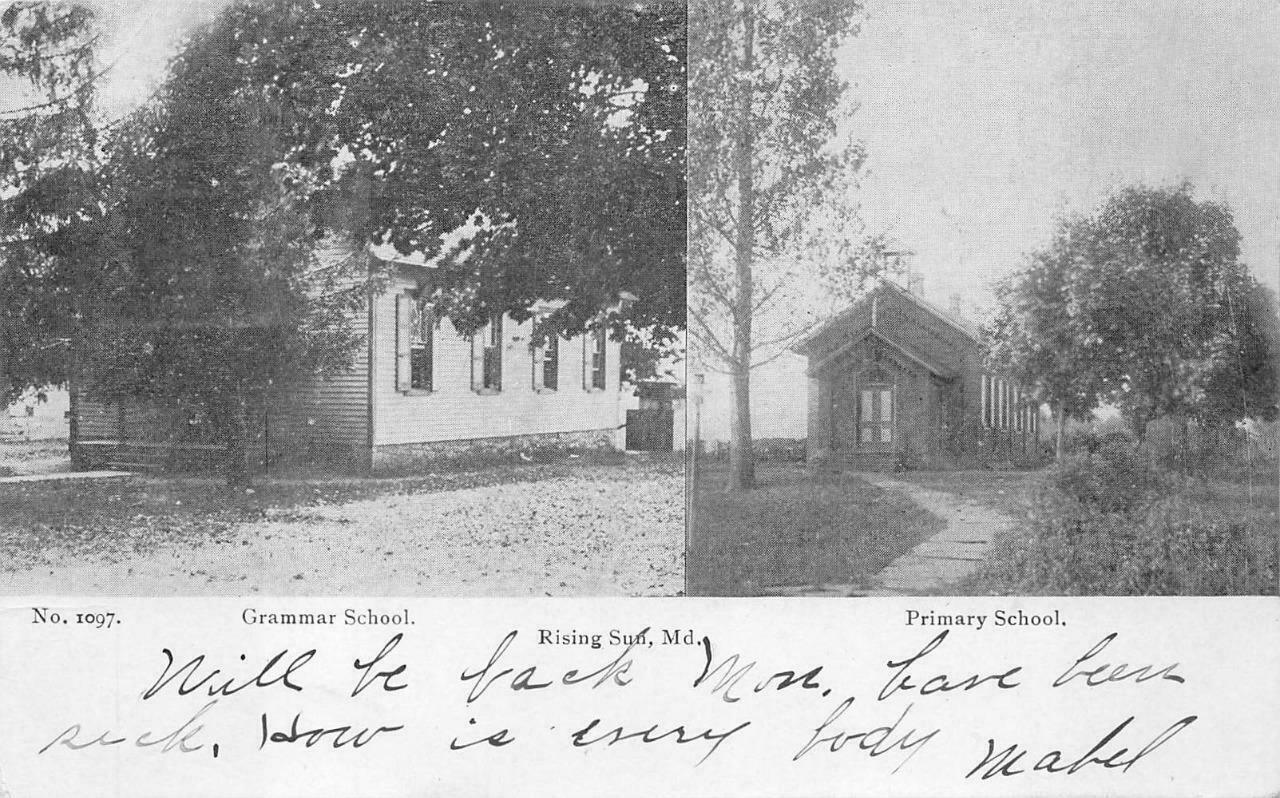 No. 1097. Grammar School. Primary School.
Rising Sun, Md.
Will be back Mon. have been
sick. How is every body
Mabel